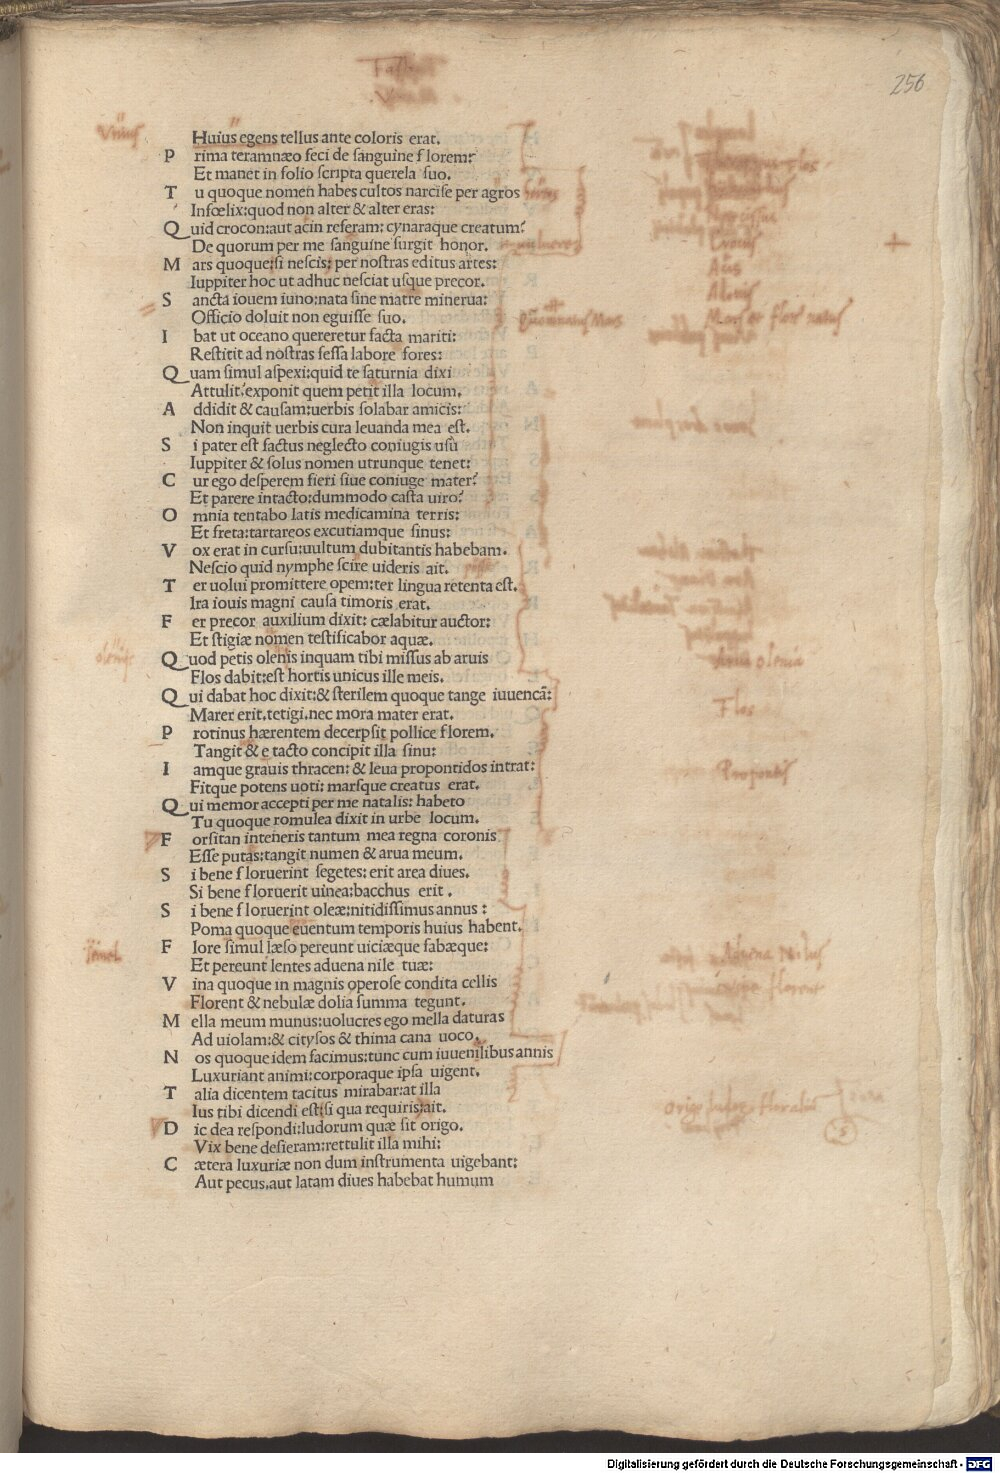 256
Huius egens tellus ante coloris erat.
P rima teramnæo feci de sanguine florem:
Et manet in folio scripta querela suo.
T u quoque nomen habes cultos narcise per agros
Infœlix: quod non alter & alter eras:
Q uid crocon: aut acin referam: cynaraque creatum?
De quorum per me sanguine surgit honor.
M ars quoque: si nescis: per nostras editus artes:
Iuppiter hoc ut adhuc nesciat usque precor.
S ancta iouem iuno: nata sine matre minerua:
Officio doluit non eguisse suo.
I bat ut oceano quereretur facta mariti:
Restitit ad nostras fessa labore fores:
Q uam simul aspexi: quid te saturnia dixi
Attulit? exponit quem petit illa locum.
A ddidit & causam: uerbis solabar amicis:
Non inquit uerbis cura leuanda mea est.
S i pater est factus neglecto coniugis usu
Iuppiter & solus nomen utrunque tenet:
C ur ego desperem fieri siue coniuge mater?
Et parere intacto: dummodo casta uiro?
O mnia tentabo latis medicamina terris:
Et freta: tartareos excutiamque sinus:
V ox erat in cursu: uultum dubitantis habebam.
Nescio quid nymphe scire uideris ait.
T er uolui promittere opem: ter lingua retenta est.
Ira iouis magni causa timoris erat.
F er precor auxilium dixit: cælabitur auctor:
Et stigiæ nomen testificabor aquæ.
Q uod petis olenis inquam tibi missus ab aruis
Flos dabit: est hortis unicus ille meis.
Q ui dabat hoc dixit: & sterilem quoque tange iuuencã:
Marer erit. tetigi. nec mora mater erat.
P rotinus hærentem decerpsit pollice florem.
Tangit & e tacto concipit illa sinu:
I amque grauis thracen: & leua propontidos intrat:
Fitque potens uoti: marsque creatus erat.
Q ui memor accepti per me natalis: habeto
Tu quoque romulea dixit in urbe locum.
F orsitan inteneris tantum mea regna coronis
Esse putas: tangit numen & arua meum.
S i bene floruerint segetes: erit area diues.
Si bene floruerit uinea: bacchus erit.
S i bene floruerint oleæ: nitidissimus annus:
Poma quoque euentum temporis huius habent.
F lore simul læso pereunt uiciæque fabæque:
Et pereunt lentes aduena nile tuæ:
V ina quoque in magnis operose condita cellis
Florent & nebulæ dolia summa tegunt.
M ella meum munus: uolucres ego mella daturas
Ad uiolam: & citysos & thima cana uoco.
N os quoque idem facimus: tunc cum iuuenilibus annis
Luxuriant animi: corporaque ipsa uigent.
T alia dicentem tacitus mirabar: at illa
Ius tibi dicendi est: si qua requiris: ait.
D ic dea respondi: ludorum quæ sit origo.
Vix bene desieram: rettulit illa mihi:
C ætera luxuriæ non dum instrumenta uigebant:
Aut pecus. aut latam diues habebat humum
Narcissus
Crocus
Flos
Propontis
Digitalisierung gefördert durch die Deutsche Forschungsgemeinschaft - DFG